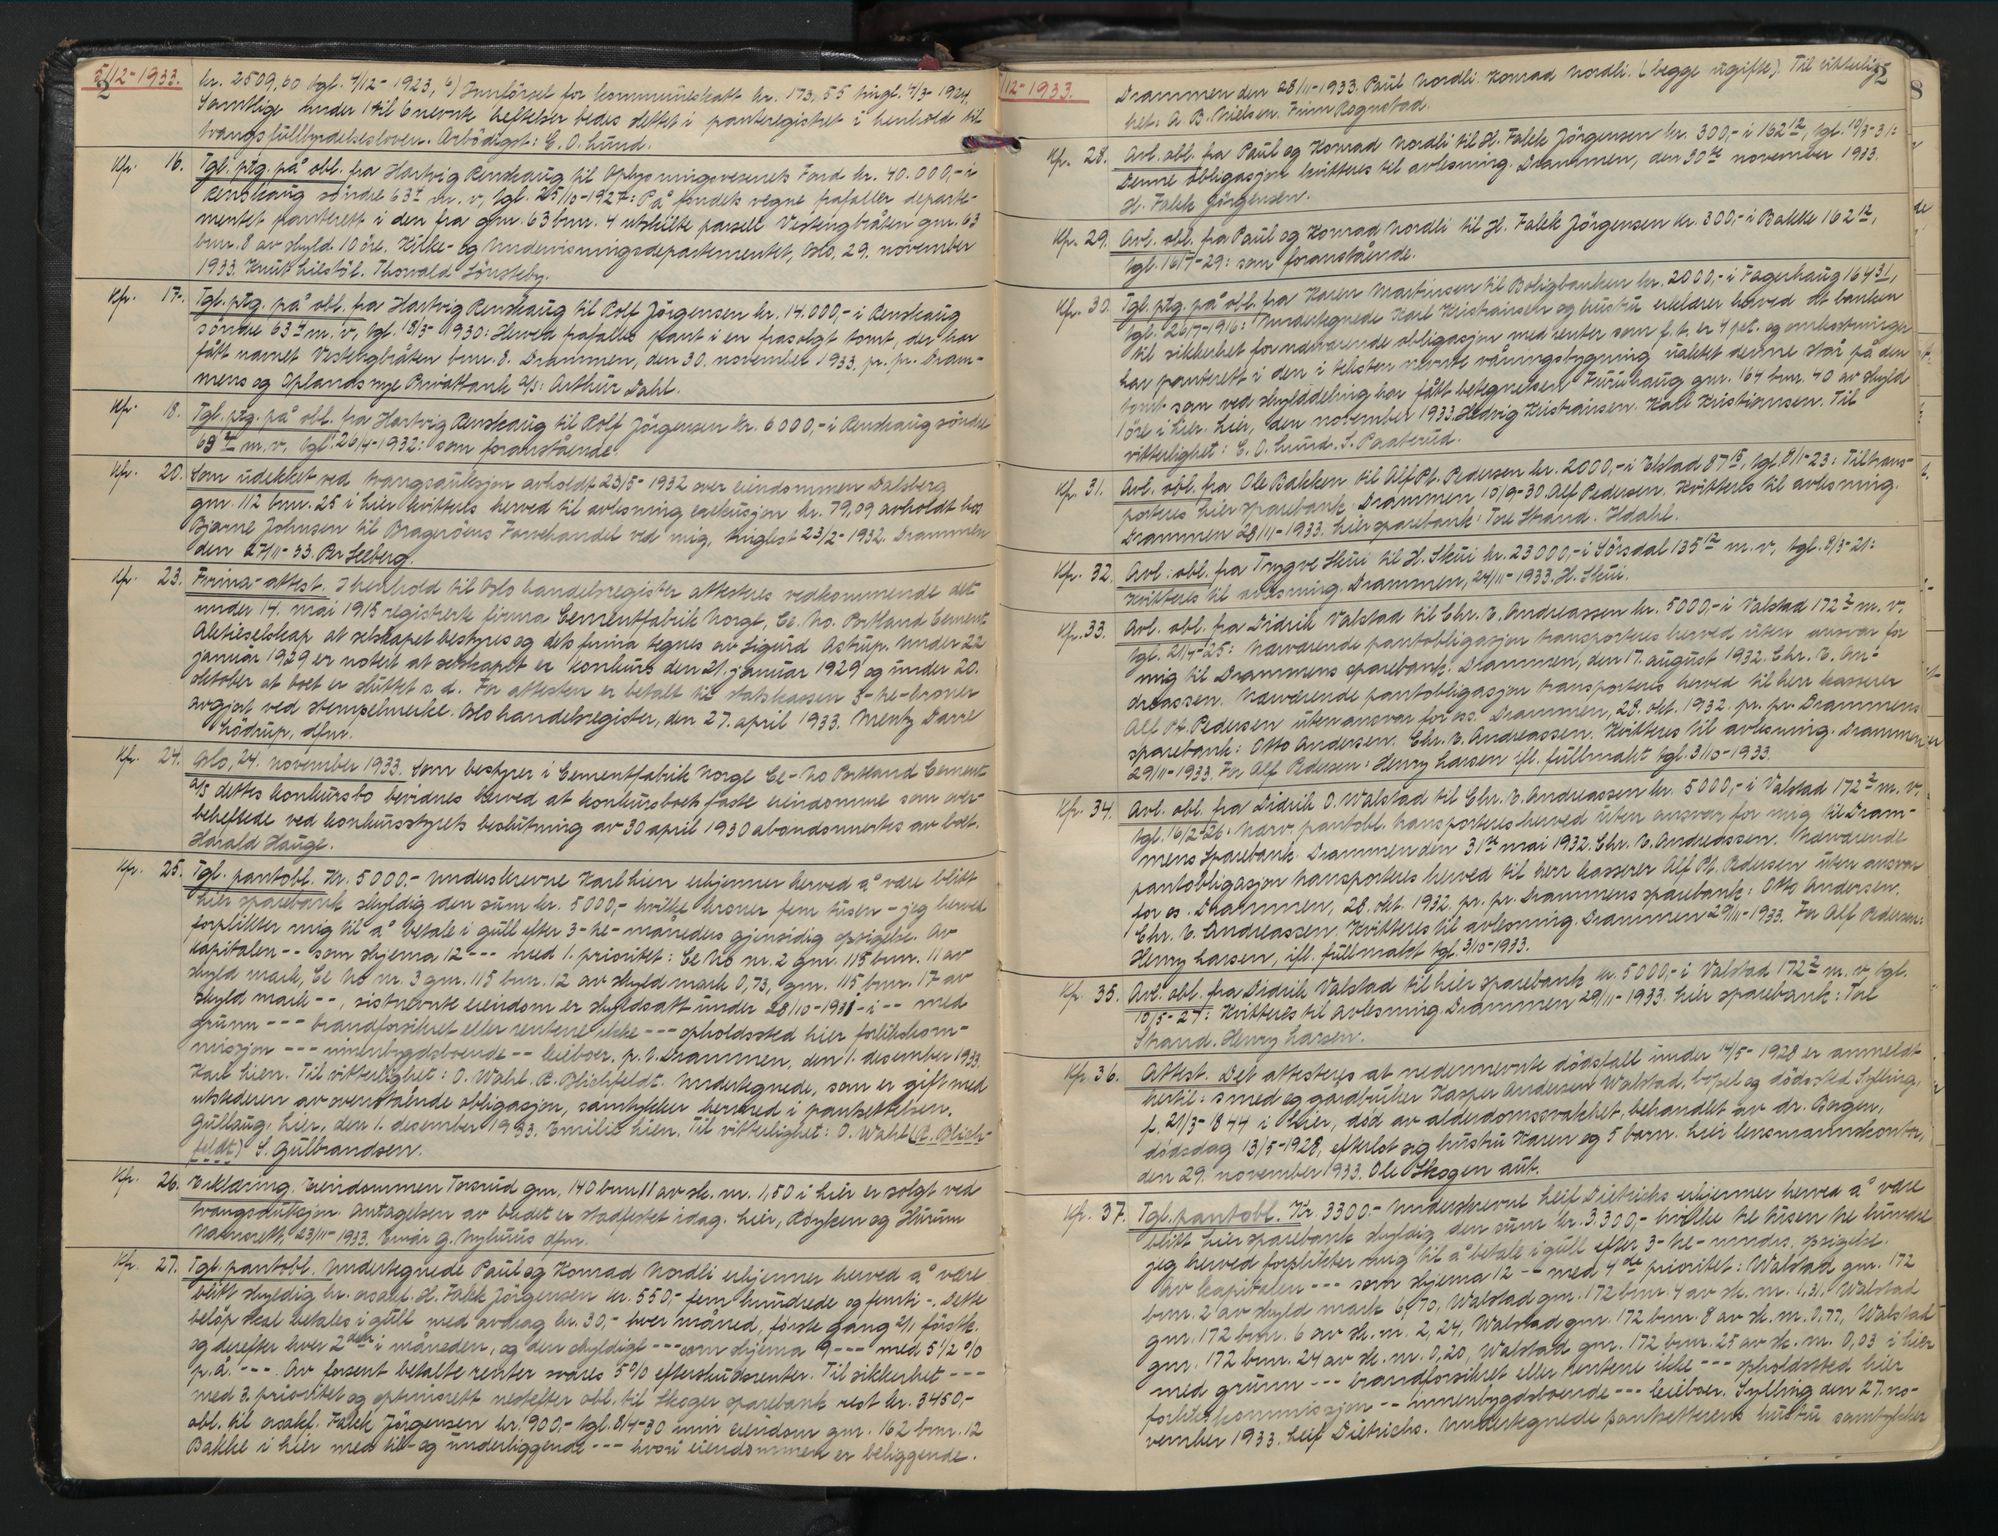 5/12-1933.
2
kr. 2509,60 tgl. 4/12-1923, 6) Innførsel for kommuneskatt kr. 173,55 tingl. 4/3-1924.
Samtlige under 1 til 6 nevnte heftelser bedes slettet i panteregistret i henhold til
tvangsfullbyrdelsesloven. Ærbödigst: E. O. Lund.
Kfr. 16. Tgl. ptg. på obl. fra Hartvig Renskaug til Oplysningsvesenets Fond kr. 40.000,- i
Renskaug söndre 63 4 m. v. tgl. 25/10-1927: På fondets vegne frafaller departe-
mentet panterett i den fra gnr. 63 bnr. 4 utskilte parsell Vestengbråten gnr. 63
bnr. 8 av skyld 10 öre. Kirke- og Undervisningsdepartementet, Oslo, 29. november
1933. Knut Liestöl. Thorvald Lönsteby.
Kfr. 17. Tgl. ptg. på obl. fra Hartvig Renskaug til Rolf Jörgensen kr. 14.000,- i Renskaug
söndre 63 4 m. v. tgl. 18/3-1930: Herved frafalles pant i en frasolgt tomt, der har
fått navnet Vestengbråten bnr. 8. Drammen, den 30. november 1933. pr. pr. Dram-
mens og Oplands nye Privatbank a/s: Arthur Dahl.
Kfr. 18. Tgl. ptg. på obl. fra Hartvig Renskaug til Rolf Jörgensen kr. 6000,- i Renskaug söndre
63 4 m. v. tgl. 26/4-1932: som foranstående.
Kfr. 20. Som udekket ved tvangsauksjon avholdt 23/5-1932 over eiendommen Dalsberg
gnr. 112 bnr. 25 i Lier kvitteres herved til avlesning exekusjon kr. 79,09 avholdt hos
Bjarne Johnsen til Bragerøens Farvehandel ved mig, tinglest 23/2-1932. Drammen
den 27/11-33. Br. Seeberg.
Kfr. 23. Firma-attest. I henhold til Oslo handelsregister attesteres vedkommende det
under 14. mai 1915 registrerte firma Cementfabrik Norge, Ce. No. Portland Cement
Aktieselskap at selskapet bestyres og dets firma tegnes av Sigurd Astrup. Under 22
januar 1929 er notert at selskapet er konkurs den 21. januar 1929 og under 20.
oktober at boet er sluttet s. d. For attesten er betalt til statskassen 3-tre-kroner
avgjort ved stempelmerke. Oslo handelsregister, den 27. april 1933. Mentz Darre
Lödrup, dfm.
Kfr. 24. Oslo, 24. november 1933. Som bestyrer i Cementfabrik Norge Ce-No Portland Cement
A/S dettes konkursbo bevidnes herved at konkursboets faste eiendomme som over-
beheftede ved konkursstyrets beslutning av 30 april 1930 abandonnertes av boet.
Harald Hauge.
Kfr. 25. Tgl. pantobl. Kr. 5000.- Underskrevne Karl Lien erkjenner herved å være blitt
Lier sparebank skyldig den sum kr. 5000,- hvilke kroner fem tusen - jeg herved
forplikter mig til å betale i gull efter 3-tre-måneders gjensidig opsigelse. Av
kapitalen -- som skjema 12 --- med 1. prioritet: Ce No nr. 2 gnr. 115 bnr. 11 av
skyld mark, Ce No nr. 3 gnr. 115 bnr. 12 av skyld mark 0,73, gnr. 115 bnr. 17 av
skyld mark --, sistnevnte eiendom er skyldsatt under 28/10-1931 - i -- med
grunn --- brandforsikret eller rentene ikke --- opholdssted Lier forlikskom-
missjon --- innenbygdsboende -- leieboer. p. t. Drammen, den 1. desember 1933.
Karl Lien. Til vitterlighet: O. Wahl. R. Blichfeldt. Undertegnede, som er gift med
utstederen av ovenstående obligasjon, samtykker herved i pantsettelsen.
Gullaug, Lier, den 1. desember 1933. Emilie Lien. Til vitterlighet: O. Wahl (R. Blich-
feldt) S. Gulbrandsen.
Kfr. 26. Erklæring. Eiendommen Torsrud gnr. 140 bnr. 11 av sk. m. 1,50 i Lier er solgt ved
tvangsauksjon. Antagelsen av budet er stadfestet idag. Lier, Röyken og Hurum
namsrett, 23/11-1933. Einar G. Nyhuus dfm.
Kfr. 27. Tgl. pantobl. Undertegnede Paul og Konrad Nordli erkjenner herved å være
blitt skyldig hr. asakf. H. Falck Jörgensen kr. 550,- fem hundrede og femti -. Dette
belöp skal betales i gull med avdrag kr. 30,- hver måned, förste gang 2/1 förstk.
og derefter hver 2den i måneden, og den skyldige --- som skjema 9 --- med 5 1/2 %
p.å. --- Av forsent betalte renter svares 5% efterskuddsrenter. Til sikkerhet ---
med 3. prioritet og optrinsrett nestefter obl. til Skoger sparebank rest kr. 3450,-
obl. til asakf. Falck Jörgensen kr. 900,- tgl. 8/4-30 min eiendom gnr. 162 bnr. 12
Bakke i Lier med til- og underliggende --- hvori eiendommen er beliggende.
/12-1933.
2
Drammen den 28/11-1933. Paul Nordli. Konrad Nordli. (begge ugifte). Til vitterlig-
het: A. B. Nielsen. Finn Rognstad.
Kfr. 28. Avl. obl. fra Paul og Konrad Nordli til H. Falck Jörgensen kr. 300,- i 162 12, tgl. 19/3-31:
Denne obligasjon kvitteres til avlesning. Drammen, den 30te november 1933.
H. Falck Jörgensen.
Kfr. 29. Avl. obl. fra Paul og Konrad Nordli til H. Falck Jörgensen kr. 300,- i Bakke 162 12,
tgl. 16/7-29: som foranstående.
Kfr. 30. Tgl. ptg. på obl. fra Karen Martinsen til Boligbanken kr. 2000,- i Fagerhaug 164 31,
tgl. 26/7-1916: Undertegnede Karl Kristiansen og hustru erklærer herved at banken
til sikkerhet for nærværende obligasjon med renter som f. t. er 4 pct. og omkostninger
har panterett i den i teksten nevnte våningsbygning uaktet denne står på den
tomt som ved skylddeling har fått betegnelsen Furuhaug gnr. 164 bnr. 40 av skyld
1 öre i Lier. Lier, den november 1933. Hedvig Kristiansen. Karl Kristiansen. Til
vitterlighet: E. O. Lund. S. Paaberud.
Kfr. 31. Avl. obl. fra Ole Bakken til Alf Pt. Pedersen kr. 2000,- i Elstad 87 15, tgl. 8/11-23: Tiltrans-
porteres Lier sparebank. Drammen 10/9-30. Alf Pedersen. Kvitteres til avlesning.
Drammen 28/11-1933. Lier sparebank: Tore Strand. Hdahl.
Kfr. 32. Avl. obl. fra Trygve Skui til H. Skui kr. 23000,- i Sörsdal 135 12 m. v. tgl. 8/3-21:
Kvitteres til avlesning. Drammen, 24/11-1933. H. Skui.
Kfr. 33. Avl. obl. fra Didrik Valstad til Chr. E. Andreassen kr. 5000,- i Valstad 172 2 m. v.
tgl. 21/4-25: Nærværende pantobligasjon transporteres herved uten ansvar for
mig til Drammens sparebank. Drammen, den 17. august 1932. Chr. E. An-
dreassen. Nærværende pantobligasjon transporteres herved til herr kasserer
Alf Pt. Pedersen uten ansvar for os. Drammen, 28. okt. 1932. pr. pr. Drammens
sparebank: Otto Andersen. Chr. E. Andreassen. Kvitteres til avlesning. Drammen
29/11-1933. For Alf Pedersen: Henry Larsen ifl. fullmakt tgl. 3/10-1933.
Kfr. 34. Avl. obl. fra Didrik O. Walstad til Chr. E. Andreassen kr. 5000,- i Valstad 172 2 m. v.
tgl. 16/2-26: Nærv. pantobl. transporteres herved uten ansvar for mig til Dram-
mens Sparebank. Drammen den 31te mai 1932. Chr. E. Andreassen. Nærværende
pantobligasjon transporteres herved til herr kasserer Alf Pt. Pedersen uten ansvar
for os. Drammen, 28. okt. 1932. pr. pr. Drammens sparebank: Otto Andersen.
Chr. E. Andreassen. Kvitteres til avlesning. Drammen 29/11-1933. For Alf Pedersen:
Henry Larsen, ifl. fullmakt tgl. 3/10-1933.
Kfr. 35. Avl. obl. fra Didrik Valstad til Lier sparebank kr. 5000,- i Valstad 172 2 m. v. tgl.
10/5-27: Kvitteres til avlesning Drammen 29/11-1933. Lier sparebank: Tore
Strand. Henry Larsen.
Kfr. 36. Attest. Det attesteres at nedennevnte dödsfall under 14/5-1928 er anmeldt
hertil: smed og gårdbruker Kasper Andersen Walstad, bopel og dödssted Sylling,
f. 21/3-1844 i Lier, död av alderdomssvakhet, behandlet av dr. Bogen,
dödsdag 13/5-1928, efterlot sig hustru Karen og 5 barn. Lier lensmannskontor,
den 29. november 1933. Ole Skogen aut.
Kfr. 37. Tgl. pantobl. Kr. 3300.- Underskrevne Leif Dietrichs erkjenner herved å være
blitt Lier sparebank skyldig den sum kr. 3.300,- hvilke tre tusen tre hundre
jeg herved forplikter mig til å betale i gull efter 3-tre-mndrs. opsigelse.
Av kapitalen --- som skjema 12 -- med 4de prioritet: Walstad gnr. 172
bnr. 2 av skyld mark 6,70, Walstad gnr. 172 bnr. 4 av sk. m. 1,31, Walstad
gnr. 172 bnr. 6 av sk. m. 2,24, Walstad gnr. 172 bnr. 8 av sk. m. 0,77, Walstad
gnr. 172 bnr. 24 av sk. m. 0,20, Walstad gnr. 172 bnr. 25 av sk. m. 0,03 i Lier
med grunn --- brandforsikret eller rentene ikke --- opholdssted Lier
forlikskommissjon -- innenbygdsboende --- leieboer. Sylling den 27. no-
vember 1933. Leif Dietrichs. Undertegnede pantsetterens hustru samtykker